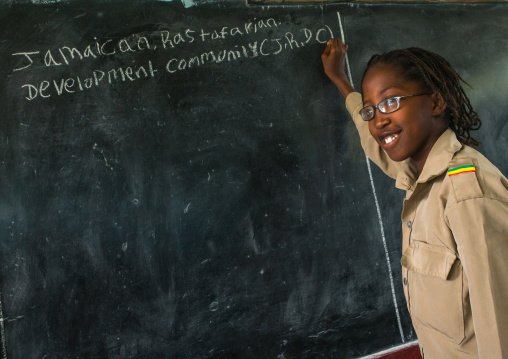 Jamaican, Rastafarian
Development Community (J.R.D.C)